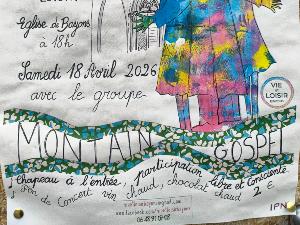 Eglise de Bayons
à 18h
Samedi 18 Avril 2026
avec le groupe
MONTAIN GOSPEL
VIE
LOISIR
Chapeau à l'entrée, participation libre et consciente
Fin de Concert vin chaud, chocolat chaud 2 €
06 45 91 08 02
IPN